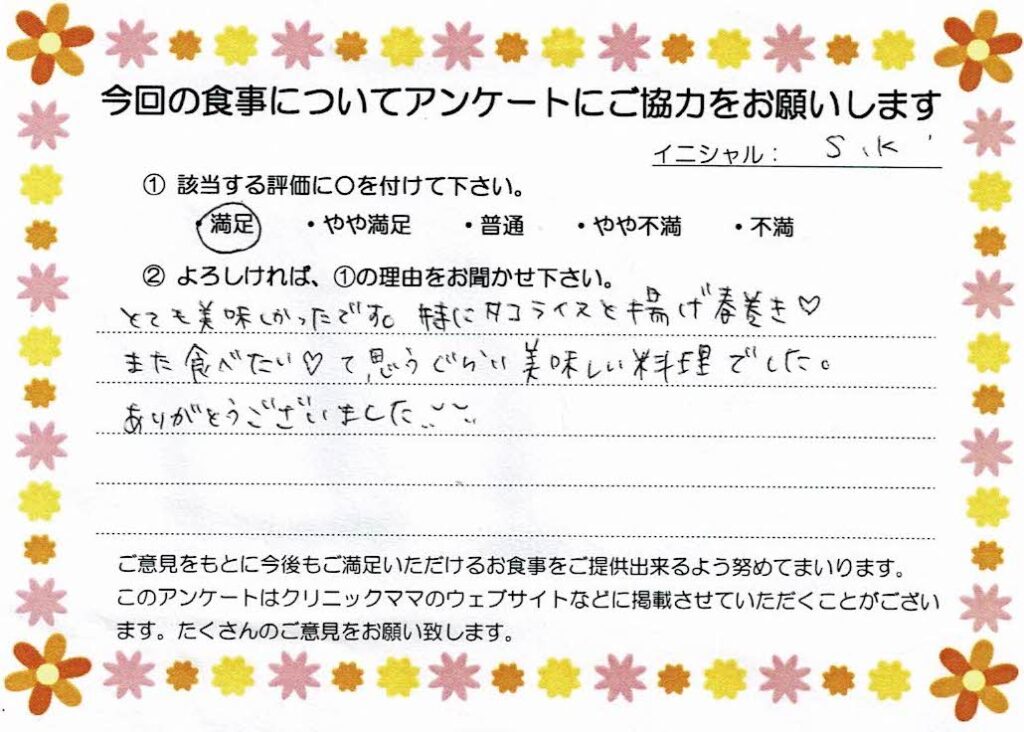 今回の食事についてアンケートにご協力をお願いします
イニシャル： S.K
① 該当する評価に〇を付けて下さい。
・満足 ・やや満足 ・普通 ・やや不満 ・不満
② よろしければ、①の理由をお聞かせ下さい。
とても美味しかったです。特にタコライスと揚げ春巻き♡
また食べたい♡て思うぐらい美味しい料理でした。
ありがとうございました
ご意見をもとに今後もご満足いただけるお食事をご提供出来るよう努めてまいります。
このアンケートはクリニックママのウェブサイトなどに掲載させていただくことがござい
ます。たくさんのご意見をお願い致します。